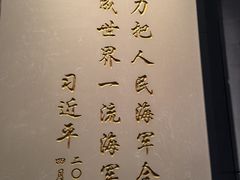 力把人民海军全
成世界一流海军
习近平
二〇
四月